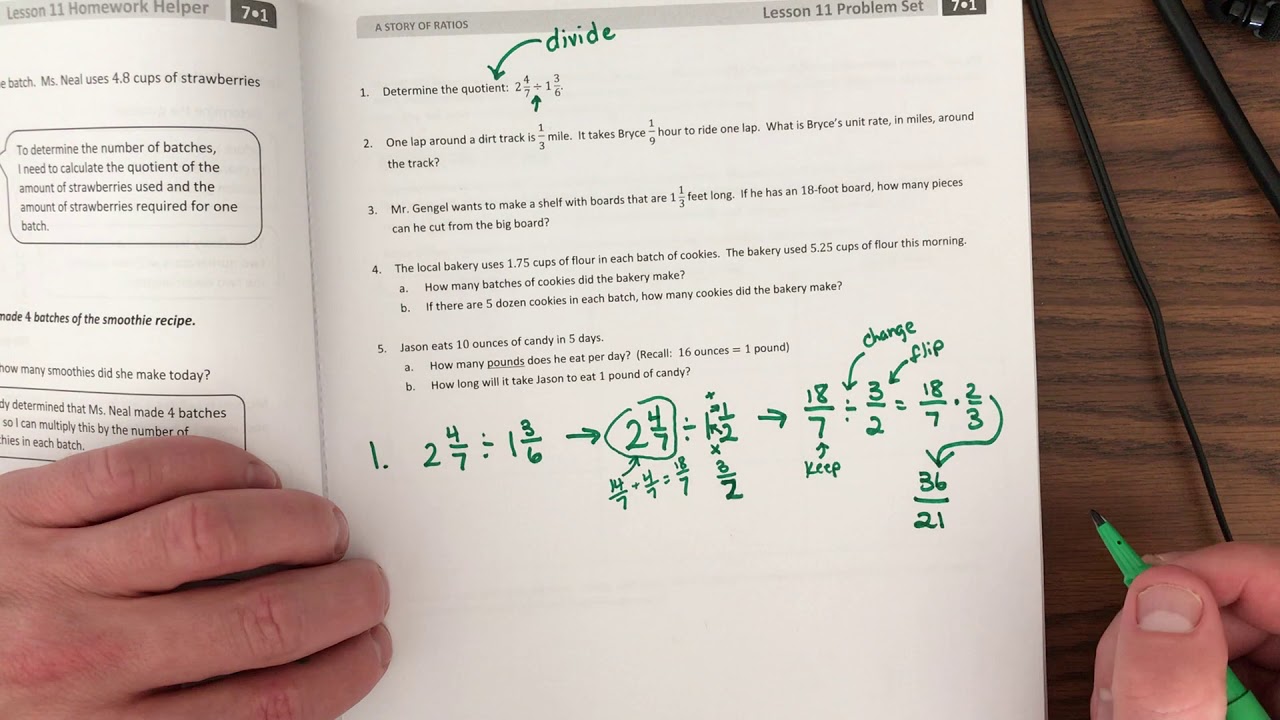 Lesson 11 Homework Helper
7•1
e batch. Ms. Neal uses 4.8 cups of strawberries
To determine the number of batches,
I need to calculate the quotient of the
amount of strawberries used and the
amount of strawberries required for one
batch.
made 4 batches of the smoothie recipe.
how many smoothies did she make today?
dy determined that Ms. Neal made 4 batches
so I can multiply this by the number of
hies in each batch.
A STORY OF RATIOS
Lesson 11 Problem Set
7•1
divide
1. Determine the quotient: 2 4/7 ÷ 1 3/6.
2. One lap around a dirt track is 1/3 mile. It takes Bryce 1/9 hour to ride one lap. What is Bryce's unit rate, in miles, around
the track?
3. Mr. Gengel wants to make a shelf with boards that are 1 1/3 feet long. If he has an 18-foot board, how many pieces
can he cut from the big board?
4. The local bakery uses 1.75 cups of flour in each batch of cookies. The bakery used 5.25 cups of flour this morning.
a. How many batches of cookies did the bakery make?
b. If there are 5 dozen cookies in each batch, how many cookies did the bakery make?
5. Jason eats 10 ounces of candy in 5 days.
a. How many pounds does he eat per day? (Recall: 16 ounces = 1 pound)
b. How long will it take Jason to eat 1 pound of candy?
change
flip
1. 2 4/7 ÷ 1 3/6 → 2 4/7 ÷ 1 1/2 → 18/7 ÷ 3/2 = 18/7 · 2/3
14/7 + 4/7 = 18/7 3/2
keep
36/21